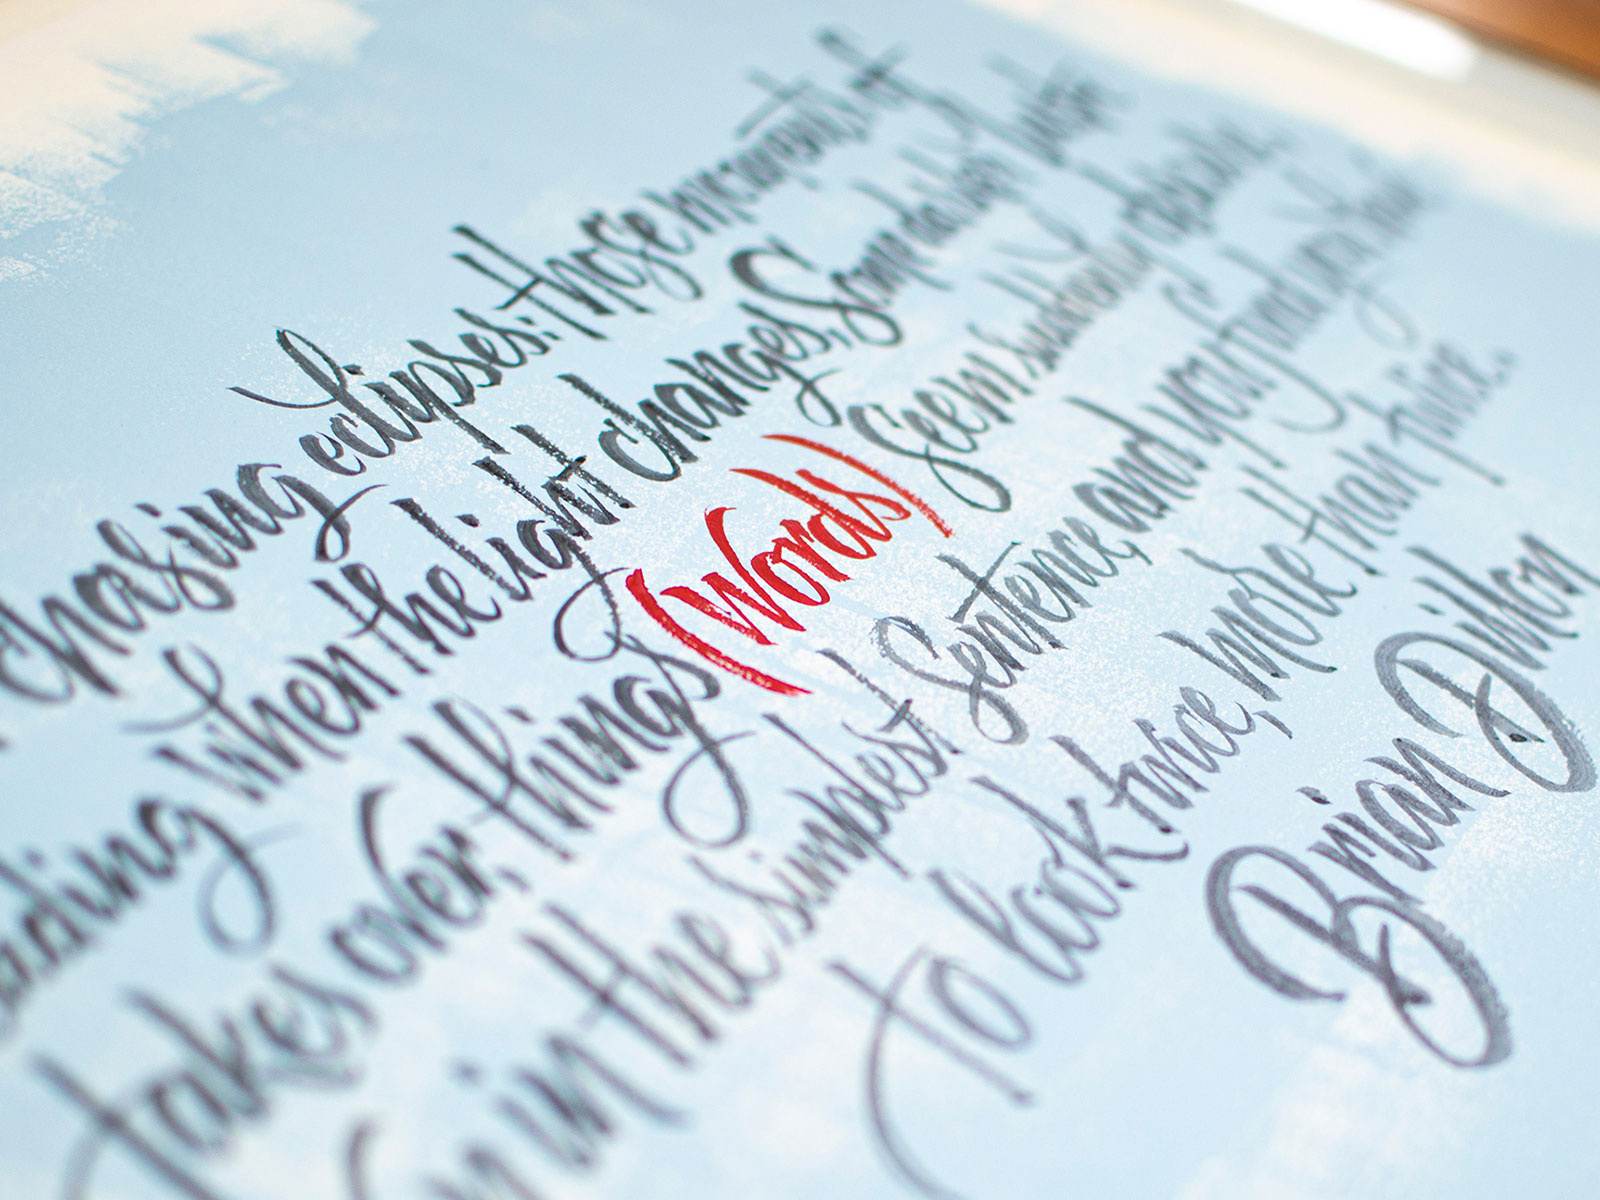 chasing eclipses: those moments of
ading when the light changes, Some darker lustre
takes over, things (words) seem suddenly obscure,
in the simplest sentence, and you find you have
to look twice, more than twice.
Brian Dillon